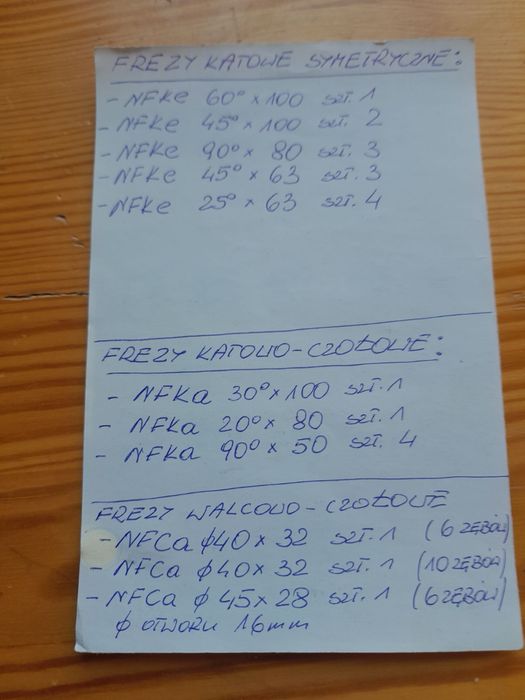 FREZY KATOWE SYMETRYCZNE:
- NFKe 60° x 100 szt. 1
- NFKe 45° x 100 szt. 2
- NFKe 90° x 80 szt. 3
- NFKe 45° x 63 szt. 3
- NFKe 25° x 63 szt. 4
FREZY KATOWO-CZOŁOWE:
- NFKa 30° x 100 szt. 1
- NFKa 20° x 80 szt. 1
- NFKa 90° x 50 szt. 4
FREZY WALCOWO-CZOŁOWE
- NFCa ϕ40 x 32 szt. 1 (6 ZĘBÓW)
- NFCa ϕ40 x 32 szt. 1 (10 ZĘBÓW)
- NFCa ϕ 45 x 28 szt. 1 (6 ZĘBÓW)
ϕ OTWORU 16mm